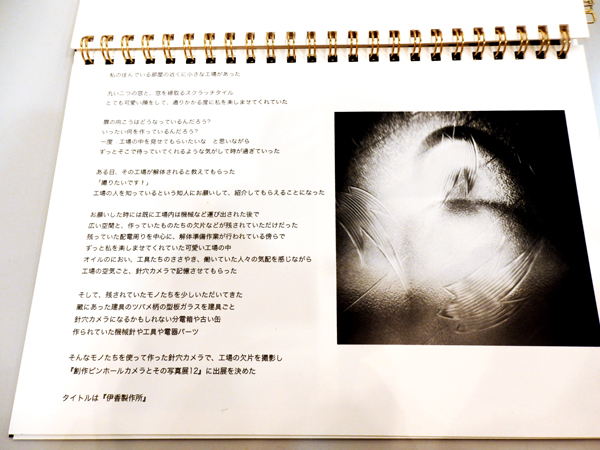 私の住んでいる部屋の近くに小さな工場があった
丸い二つの窓と、窓を縁取るスクラッチタイル
とても可愛い顔をして、通りかかる度に私を楽しませてくれていた
扉の向こうはどうなっているんだろう?
いったい何を作っているんだろう?
一度 工場の中を見せてもらいたいな と思いながら
ずっとそこで待っていてくれるような気がして時が過ぎていった
ある日、その工場が解体されると教えてもらった
「撮りたいです!」
工場の人を知っているという知人にお願いして、紹介してもらえることになった
お願いした時には既に工場内は機械など運び出された後で
広い空間と、作っていたものたちの欠片などが残されていただけだった
残っていた配電周りを中心に、解体準備作業が行われている傍らで
ずっと私を楽しませてくれていた可愛い工場の中
オイルのにおい、工具たちのささやき、働いていた人々の気配を感じながら
工場の空気ごと、針穴カメラで記憶させてもらった
そして、残されていたモノたちを少しいただいてきた
蔵にあった建具のツバメ柄の型板ガラスを建具ごと
針穴カメラになるかもしれない分電箱や古い缶
作られていた機械針や工具や電器パーツ
そんなモノたちを使って作った針穴カメラで、工場の欠片を撮影し
『創作ピンホールカメラとその写真展12』に出展を決めた
タイトルは『伊香製作所』